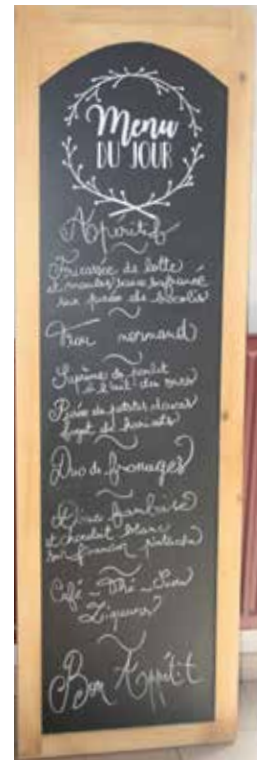 Menu
DU JOUR
Aperitif
Fricassée de lotte
et moules sauce safranée
sur purée de brocolis
Trou normand
Suprême de poulet
à l'ail des ours
Purée de patates douces
fagot de haricots
Duo de fromages
Dôme framboise
et chocolat blanc
sur financier pistache
Café - Thé -
Liqueurs
Bon Appétit